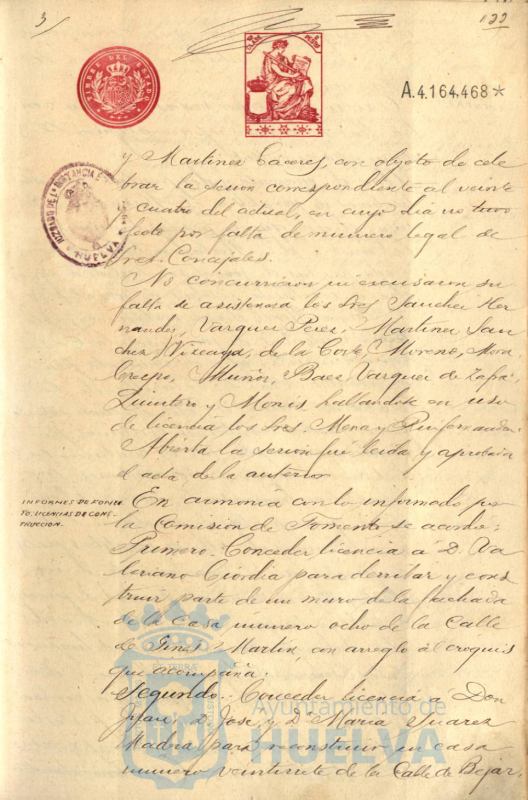 3
122
TIMBRE DEL ESTADO
A.4.164.468*
y Martinez Caceres, con objeto de cele
brar la sesión correspondiente al veinte
y cuatro del actual, en cuyo dia no tuvo
efecto por falta de número legal de
Sres. Concejales.
No concurrieron ni excusaron su
falta de asistencia los Sres Sanchez Her
nandez, Vazquez Perez, Martinez San
chez, Vizcaya, de la Corte, Moreno, Mora
Crespo, Muñoz, Baez, Vazquez de Zafra,
Quintero y Monis hallandose en uso
de licencia los Sres. Mena y
Abierta la sesión fué leida y aprobada
el acta de la anterior
INFORMES DE FOMEN
TO. LICENCIAS DE CONS-
TRUCCION.
En armonia con lo informado por
la Comisión de Fomento se acordó:
Primero. Conceder licencia á D. Va
leriano Ciordia para derribar y cons
truir parte de un muro de la fachada
de la casa número ocho de la Calle
de Gines Martin, con arreglo al croquis
que acompaña.
Segundo. Conceder licencia a Don
D. José y Dª Maria Suarez
para reconstruir su casa
número veintisiete de la Calle de Bejar,
Ayuntamiento de
HUELVA